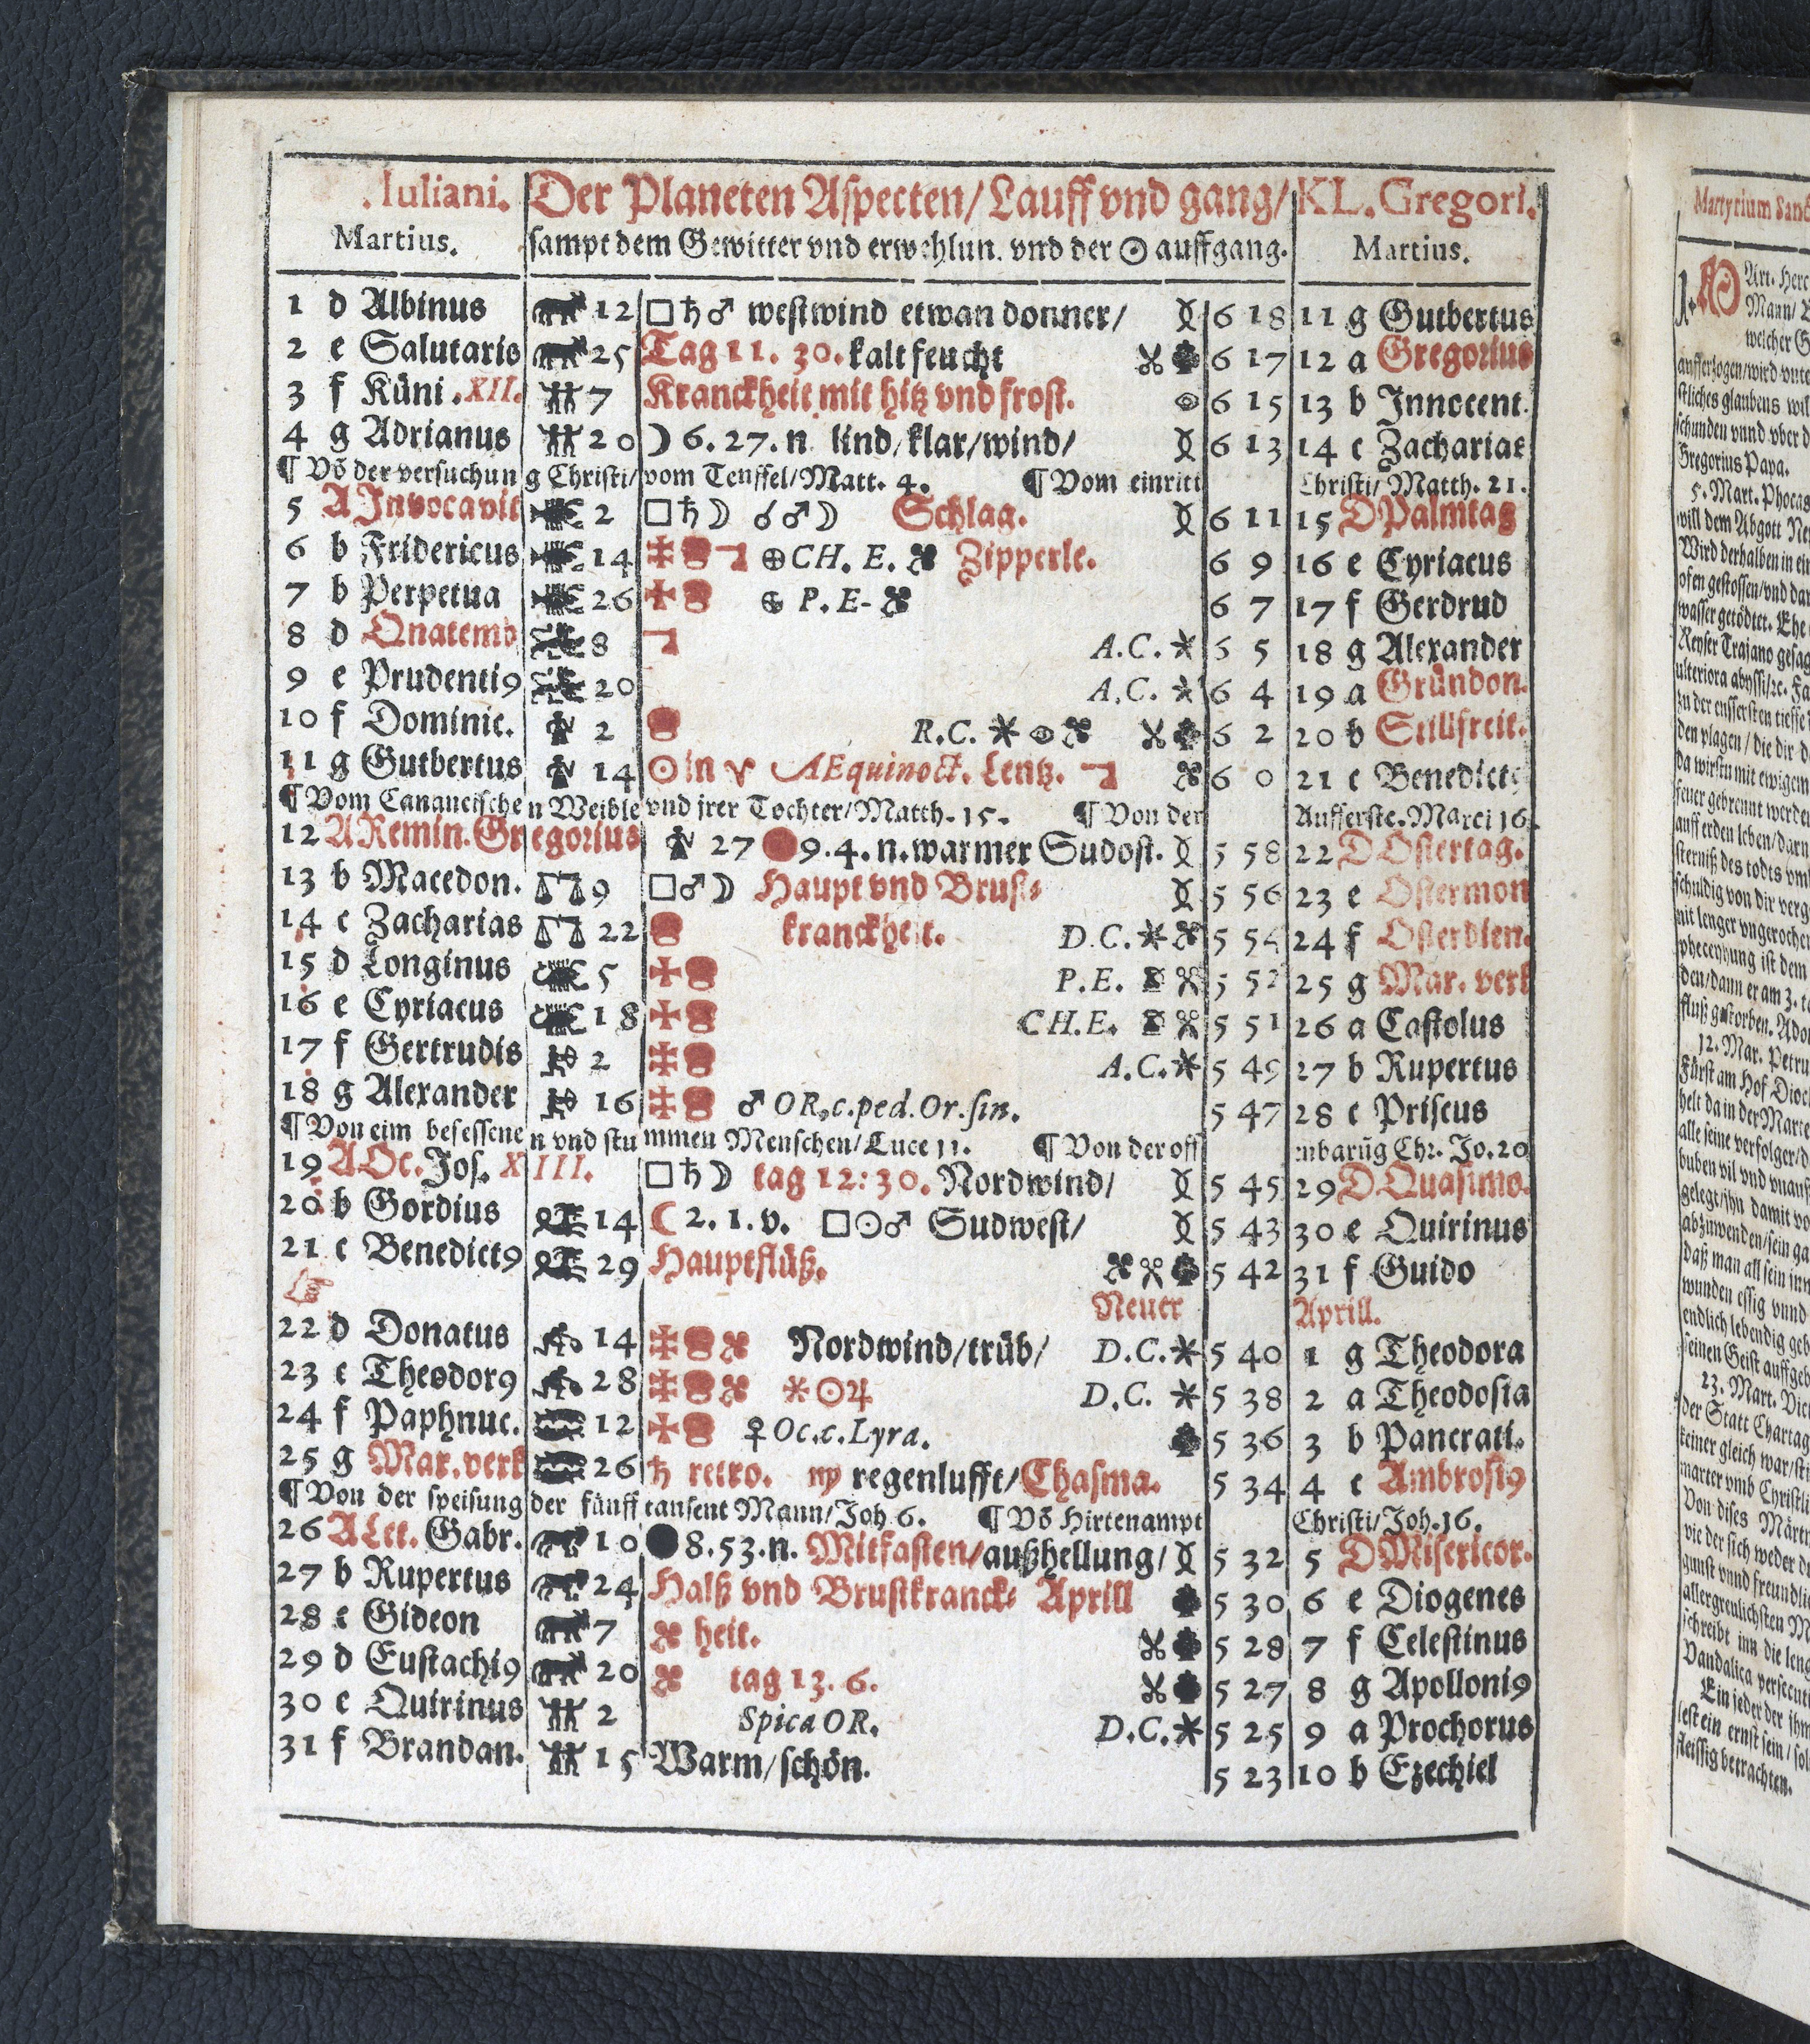 Iuliani. Der Planeten Aspecten/ Lauff vnd gang/ KL. Gregori.
Martius. sampt dem Gewitter vnd erwehlun. vnd der ☉ auffgang. Martius.
1 d Albinus 12 □♄♂ westwind etwan donner/ 6 18 11 g Gutbertus
2 e Salutaris 25 Tag 11. 30. kalt feucht 6 17 12 a Gregorius
3 f Küni. XII. 7 Kranckheit mit hitz vnd frost. 6 15 13 b Innocent.
4 g Adrianus 20 ☽ 6. 27. n lind/ klar/ wind/ 6 13 14 c Zacharias
¶ Võ der versuchung Christi/ vom Teuffel/ Matt. 4. ¶ Vom einritt Christi/ Matth. 21.
5 A Invocavit 2 □♄☽ ☌♂☽ Schlag. 6 11 15 D Palmtag
6 b Fridericus 14 ⊕ CH. E. Zipperle. 6 9 16 e Cyriacus
7 b Perpetua 26 ⊕ P. E- 6 7 17 f Gerdrud
8 d Quatemb 8 A.C. * 6 5 18 g Alexander
9 e Prudenti9 20 A.C. * 6 4 19 a Gründon.
10 f Dominic. 2 R.C. * 6 2 20 b Stillfreit.
11 g Gutbertus 14 ☉ in ♈ AEquinoct. Lentz. 6 0 21 c Benedict9
¶ Vom Cananeischen Weible vnd jrer Tochter/ Matth. 15. ¶ Von der Aufferste. Marci 16.
12 A Remin. Gregorius 27 9. 4. n. warmer Sudost. 5 58 22 D Ostertag.
13 b Macedon. 9 □♂☽ Haupt vnd Brust= 5 56 23 e Ostermon
14 c Zacharias 22 kranckheit. D.C. * 5 54 24 f Osterdien.
15 d Longinus 5 P.E. 5 52 25 g Mar. verk
16 e Cyriacus 18 CH.E. 5 51 26 a Castolus
17 f Gertrudis 2 A.C. * 5 49 27 b Rupertus
18 g Alexander 16 ♂ OR. c. ped. Or. sin. 5 47 28 c Priscus
¶ Von eim besessenen vnd stummen Menschen/ Luce 11. ¶ Von der offenbarũg Chr. Jo. 20
19 A Oc. Jos. XIII. □♄☽ tag 12: 30. Nordwind/ 5 45 29 D Quasimo.
20 b Gordius 14 ☾ 2. 1. v. □☉♂ Sudwest/ 5 43 30 e Quirinus
21 c Benedict9 29 Hauptflüß. 5 42 31 f Guido
Neuer Aprill.
22 d Donatus 14 Nordwind/ trüb/ D.C. * 5 40 1 g Theodora
23 e Theodor9 28 * ☉♃ D.C. * 5 38 2 a Theodosia
24 f Paphnuc. 12 ♀ Oc. c. Lyra. 5 36 3 b Pancrati.
25 g Mar. verk 26 ♄ retro. ♍ regenlufft/ Chasma. 5 34 4 c Ambrosi9
¶ Von der speisung der fünff tausent Mann/ Joh 6. ¶ Võ Hirtenampt Christi/ Joh. 16.
26 A Let. Gabr. 10 8. 53. n. Mitfasten/ außhellung/ 5 32 5 D Misericor.
27 b Rupertus 24 Halß vnd Brustkranck= Aprill 5 30 6 e Diogenes
28 c Gideon 7 heit. 5 28 7 f Celestinus
29 d Eustachi9 20 tag 13. 6. 5 27 8 g Apolloni9
30 e Quirinus 2 Spica OR. D.C. * 5 25 9 a Prochorus
31 f Brandan. 15 Warm/ schön. 5 23 10 b Ezechiel